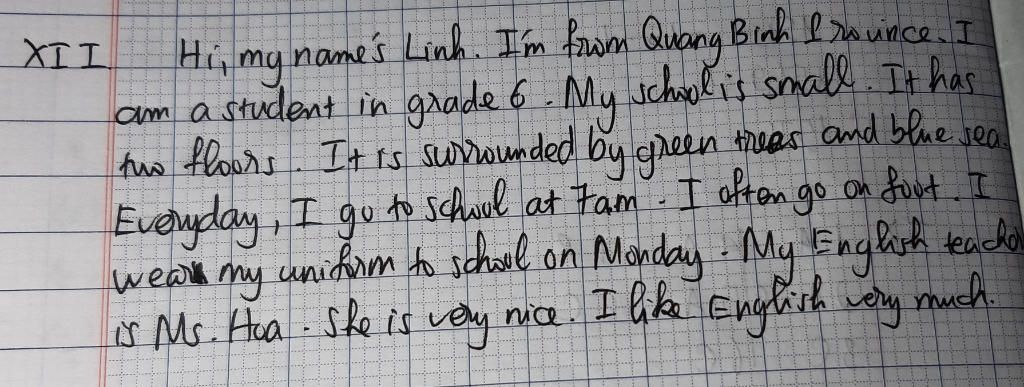 XII Hi, my name's Linh. I'm from Quang Binh Province. I
am a student in grade 6. My school is small. It has
two floors. It is surrounded by green trees and blue sea.
Everyday, I go to school at 7am. I often go on foot. I
wear my uniform to school on Monday. My English teacher
is Ms. Hoa. She is very nice. I like English very much.